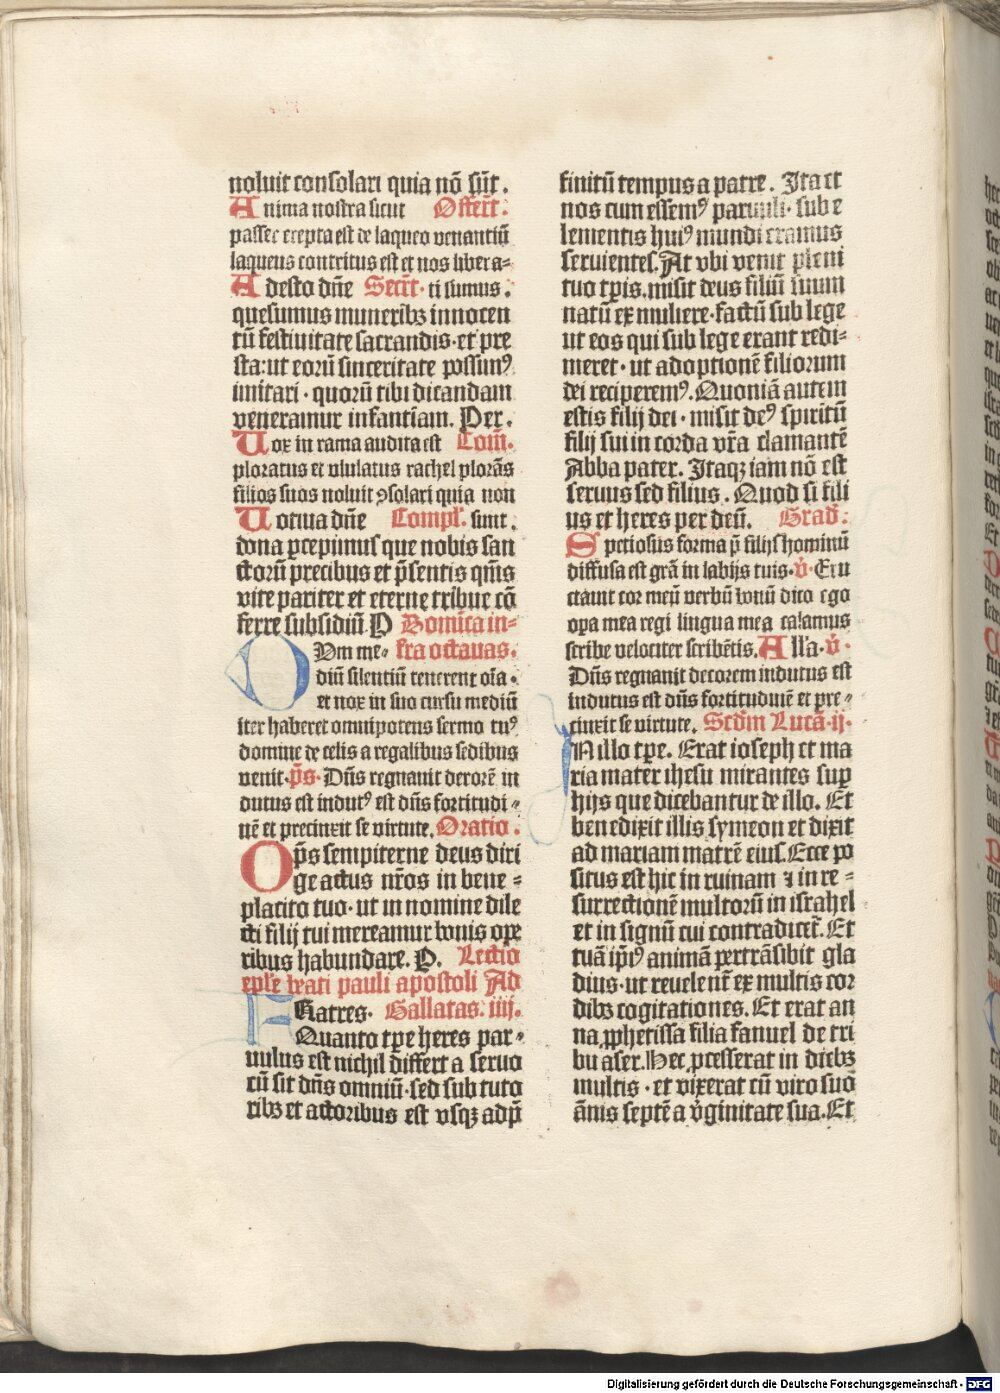 noluit consolari quia nō sūt.
Anima nostra sicut Offert̄:
passer erepta est de laqueo venantiū
laqueus contritus est et nos libera=
Adesto dn̄e Secret̄· ti sumus.
quesumus muneribꝫ innocen
tū festiuitate sacrandis·et pre
sta:ut eorū sinceritate possumꝰ
imitari·quorū tibi dicandam
veneramur infantiam. Per.
Uox in rama audita est Com̄.
ploratus et ululatus rachel plorās
filios suos noluit ꝯsolari quia non
Uotiua dn̄e Compl̄. sunt.
dona ꝑcepimus que nobis san
ctorū precibus et p̄sentis qm̄s
vite pariter et eterne tribue cō
ferre subsidiū P Domīca in=
DVm me= fra octauas.
diū silentiū tenerent oīa·
et nox in suo cursu mediū
iter haberet omnipotens sermo tuꝰ
domine de celis a regalibus sedibus
venit·p̄s·Dn̄s regnauit decorē in
dutus est indutꝰ est dn̄s fortitudi=
nē et precinxit se virtute. Oratio.
Op̄s sempiterne deus diri
ge actus nr̄os in bene=
placito tuo·ut in nomine dile
cti filij tui mereamur bonis oꝑe
ribus habundare. P. Lectio
epl̄e beati pauli apostoli Ad
FRatres· Gallatas. iiij.
Quanto tꝑe heres par=
uulus est nichil differt a seruo
cū sit dn̄s omniū·sed sub tuto
ribꝫ et actoribus est vsqꝫ ad p̄
finitū tempus a patre. Ita et
nos cum essemꝰ paruuli·sub e
lementis huiꝰ mundi eramus
seruientes. At vbi venit pleni
tuo tꝑis.misit deus filiū suum
natū ex muliere·factū sub lege
ut eos qui sub lege erant redi=
meret·ut adoptionē filiorum
dei reciperemꝰ. Quoniā autem
estis filij dei·misit deꝰ spiritū
filij sui in corda vr̄a clamantē
Abba pater. Itaqꝫ iam nō est
seruus sed filius. Quod si fili
us et heres per deū. Grad̄:
Speciosus forma p̄ filijs hominū
diffusa est grā in labijs tuis·v̄·Eru
ctauit cor meū verbū bonū dico ego
oꝑa mea regi lingua mea calamus
scribe velociter scribētis. All'a·v̄·
Dn̄s regnauit decorem indutus est
indutus est dn̄s fortitudinē et pre=
cinxit se virtute. Scd̄m Lucā·ij·
IN illo tꝑe. Erat ioseph et ma
ria mater ihesu mirantes suꝑ
hijs que dicebantur de illo. Et
benedixit illis symeon et dixit
ad mariam matrē eius. Ecce po
situs est hic in ruinam ⁊ in re=
surrectionē multorū in israhel
et in signū cui contradicet̄. Et
tuā ip̄iꝰ animā ꝑertrāsibit gla
dius·ut reuelent̄ ex multis cor
dibꝫ cogitationes. Et erat an
na ꝓphetissa filia fanuel de tri
bu aser. Hec ꝓcesserat in diebꝫ
multis·et vixerat cū viro suo
ānis septē a v̄ginitate sua. Et
Digitalisierung gefördert durch die Deutsche Forschungsgemeinschaft - DFG